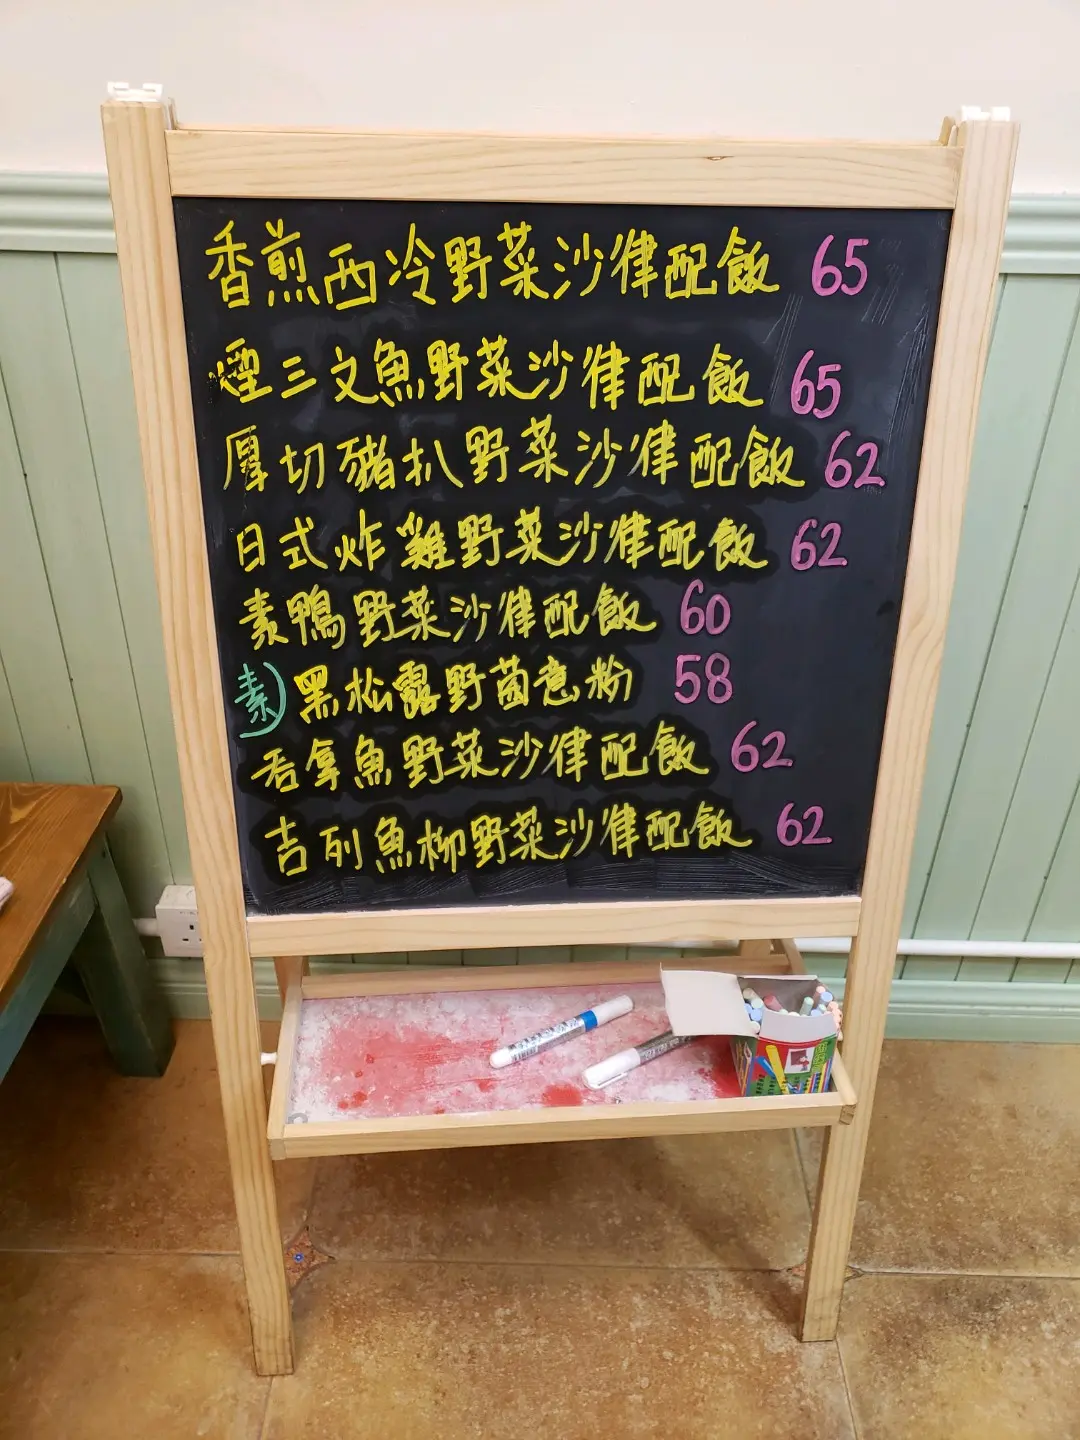 香煎西冷野菜沙律配飯 65
煙三文魚野菜沙律配飯 65
厚切豬扒野菜沙律配飯 62
日式炸雞野菜沙律配飯 62
素鴨野菜沙律配飯 60
素) 黑松露野菌意粉 58
吞拿魚野菜沙律配飯 62
吉列魚柳野菜沙律配飯 62